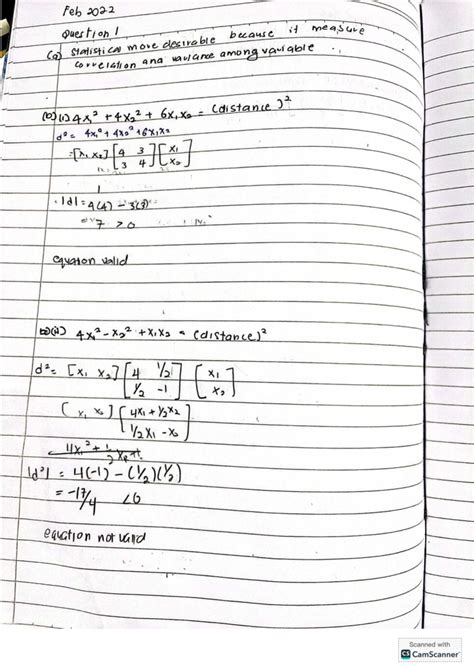 Feb 2022
Question 1
(a) Statistical more desirable because it measure
correlation and variance among variable
(b)(i) 4x₁² + 4x₂² + 6x₁x₂ = (distance)²
d² = 4x₁² + 4x₂² + 6x₁x₂
= [x₁ x₂] [4 3 3 4] [x₁ x₂]
|d| = 4(4) - 3(3)
7 > 0
equation valid
(b)(ii) 4x₁² - x₂² + x₁x₂ = (distance)²
d² = [x₁ x₂] [4 1/2 1/2 -1] [x₁ x₂]
[x₁ x₂] [4x₁ + 1/2x₂ 1/2x₁ - x₂]
|d²| = 4(-1) - (1/2)(1/2)
= -17/4 < 0
equation not valid
Scanned with
CS CamScanner